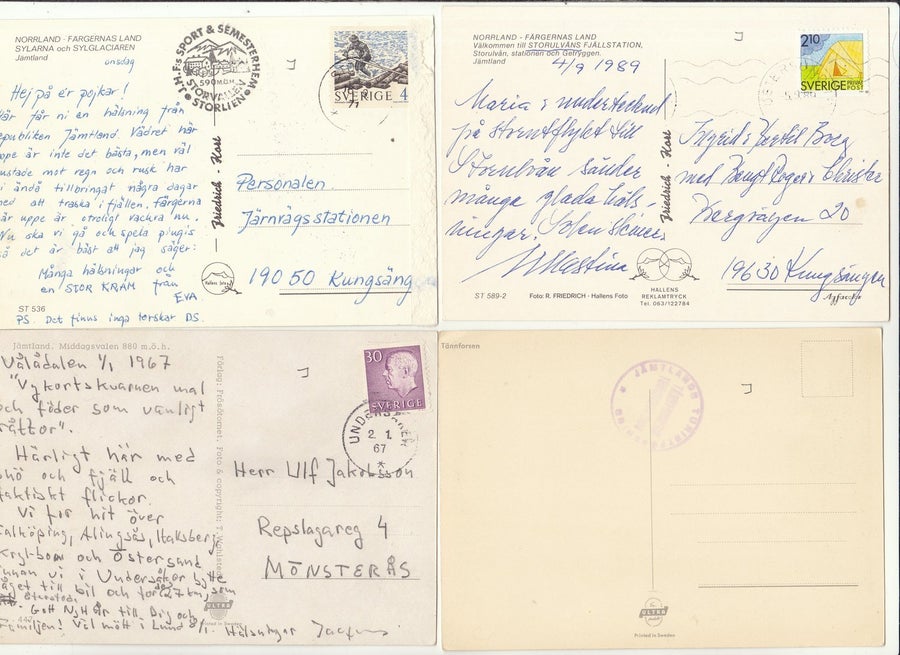 NORRLAND - FÄRGERNAS LAND
SYLARNA och SYLGLACIÄREN
Jämtland
onsdag
Hej på er pojkar!
får ni en hälsning från
republiken Jämtland. Vädret här
uppe är inte det bästa, men väl
mot regn och rusk har
vi ändå tillbringat några dagar
med att traska i fjällen. Färgerna
är uppe är otroligt vackra nu.
Nu ska vi gå och spela pingis
så det är bäst att jag säger:
Många hälsningar och
en STOR KRAM från
EVA
ST 536
PS. Det finns inga torskar DS.
J.H.F:s SPORT & SEMESTERHEM
590 M.Ö.H.
STORVALLEN
STORLIEN
SVERIGE 4
Friedrich - Kort
Personalen
Järnvägsstationen
190 50 Kungsäng
Hallens foto
NORRLAND - FÄRGERNAS LAND
Välkommen till STORULVÅNS FJÄLLSTATION,
Storulvån, stationen och Getryggen.
Jämtland
4/9 1989
Maria o undertecknad
på till
Storulvån sänder
många glada häls-
ningar. Solen skiner.
ST 589-2
Foto: R. FRIEDRICH - Hallens Foto
Friedrich - Kort
HALLENS
REKLAMTRYCK
Tel. 063/122784
2.10
SVERIGE PRIVAT
POST
Ingrid o Bertil Borg
med Bengt Roger o Christer
Bergvägen 20
196 30 Kungsängen
Agfacolor
Jämtland. Middagsvalen 880 m.ö.h.
Vålådalen 1/1 1967
"Vykortskvarnen mal
och föder som vanligt
råttor".
Härligt här med
snö och fjäll och
faktiskt flickor.
Vi for hit över
Falköping, Alingsås, Hallsberg
Krylbo och Östersund
innan vi i Undersåker bytte
tåget till bil och for 27 km, som
Gott Nytt År till Dig och
Familjen! Väl mött i Lund 8/1. Hälsningar
ULTRA
Printed in Sweden
30
SVERIGE
UNDERSÅKER
2. 1.
67
Herr Ulf Jakobsson
Repslagareg 4
MÖNSTERÅS
Tännforsen
JÄMTLANDS TURISTFÖRENING
ULTRA
Printed in Sweden